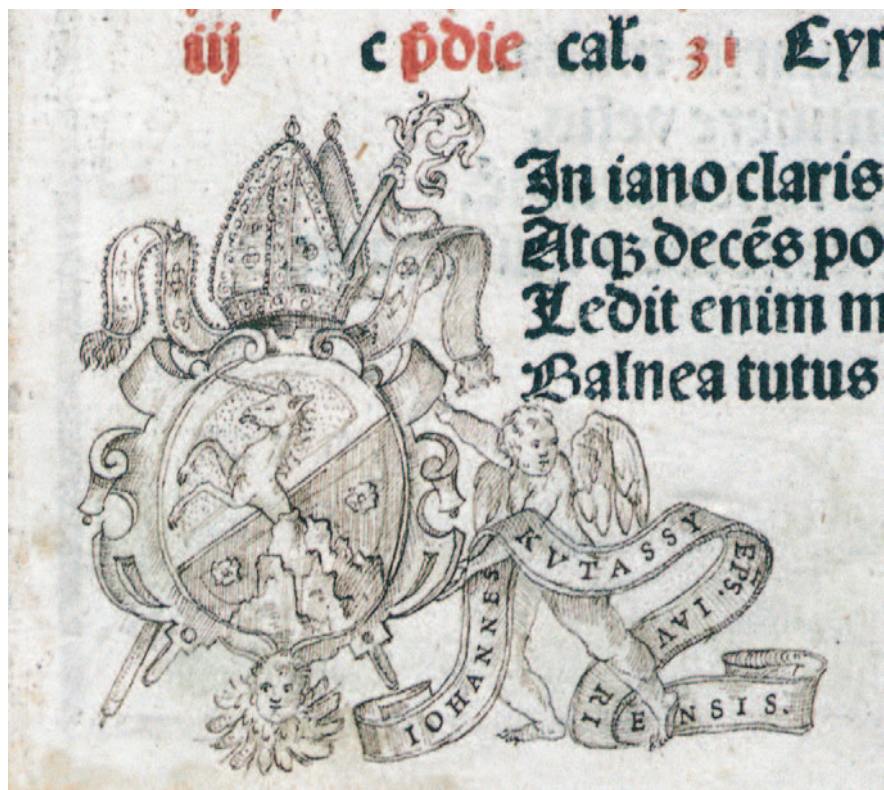 iij c p̄die cal. 31 Cyr
In iano claris
Atqꝫ decēs po
Ledit enim m
Balnea tutus
IOHANNES KVTASSY EPS. IAVRIENSIS.